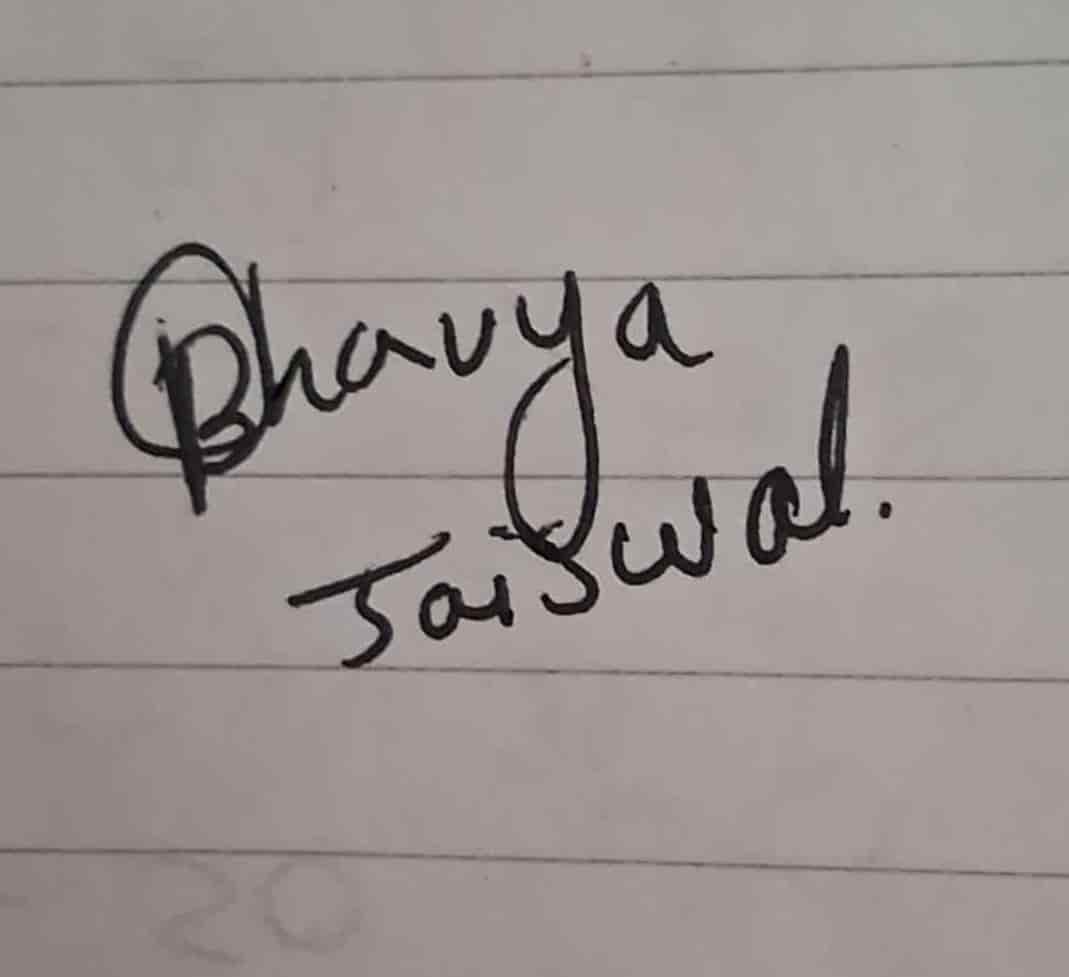 Bhavya
Jaiswal.